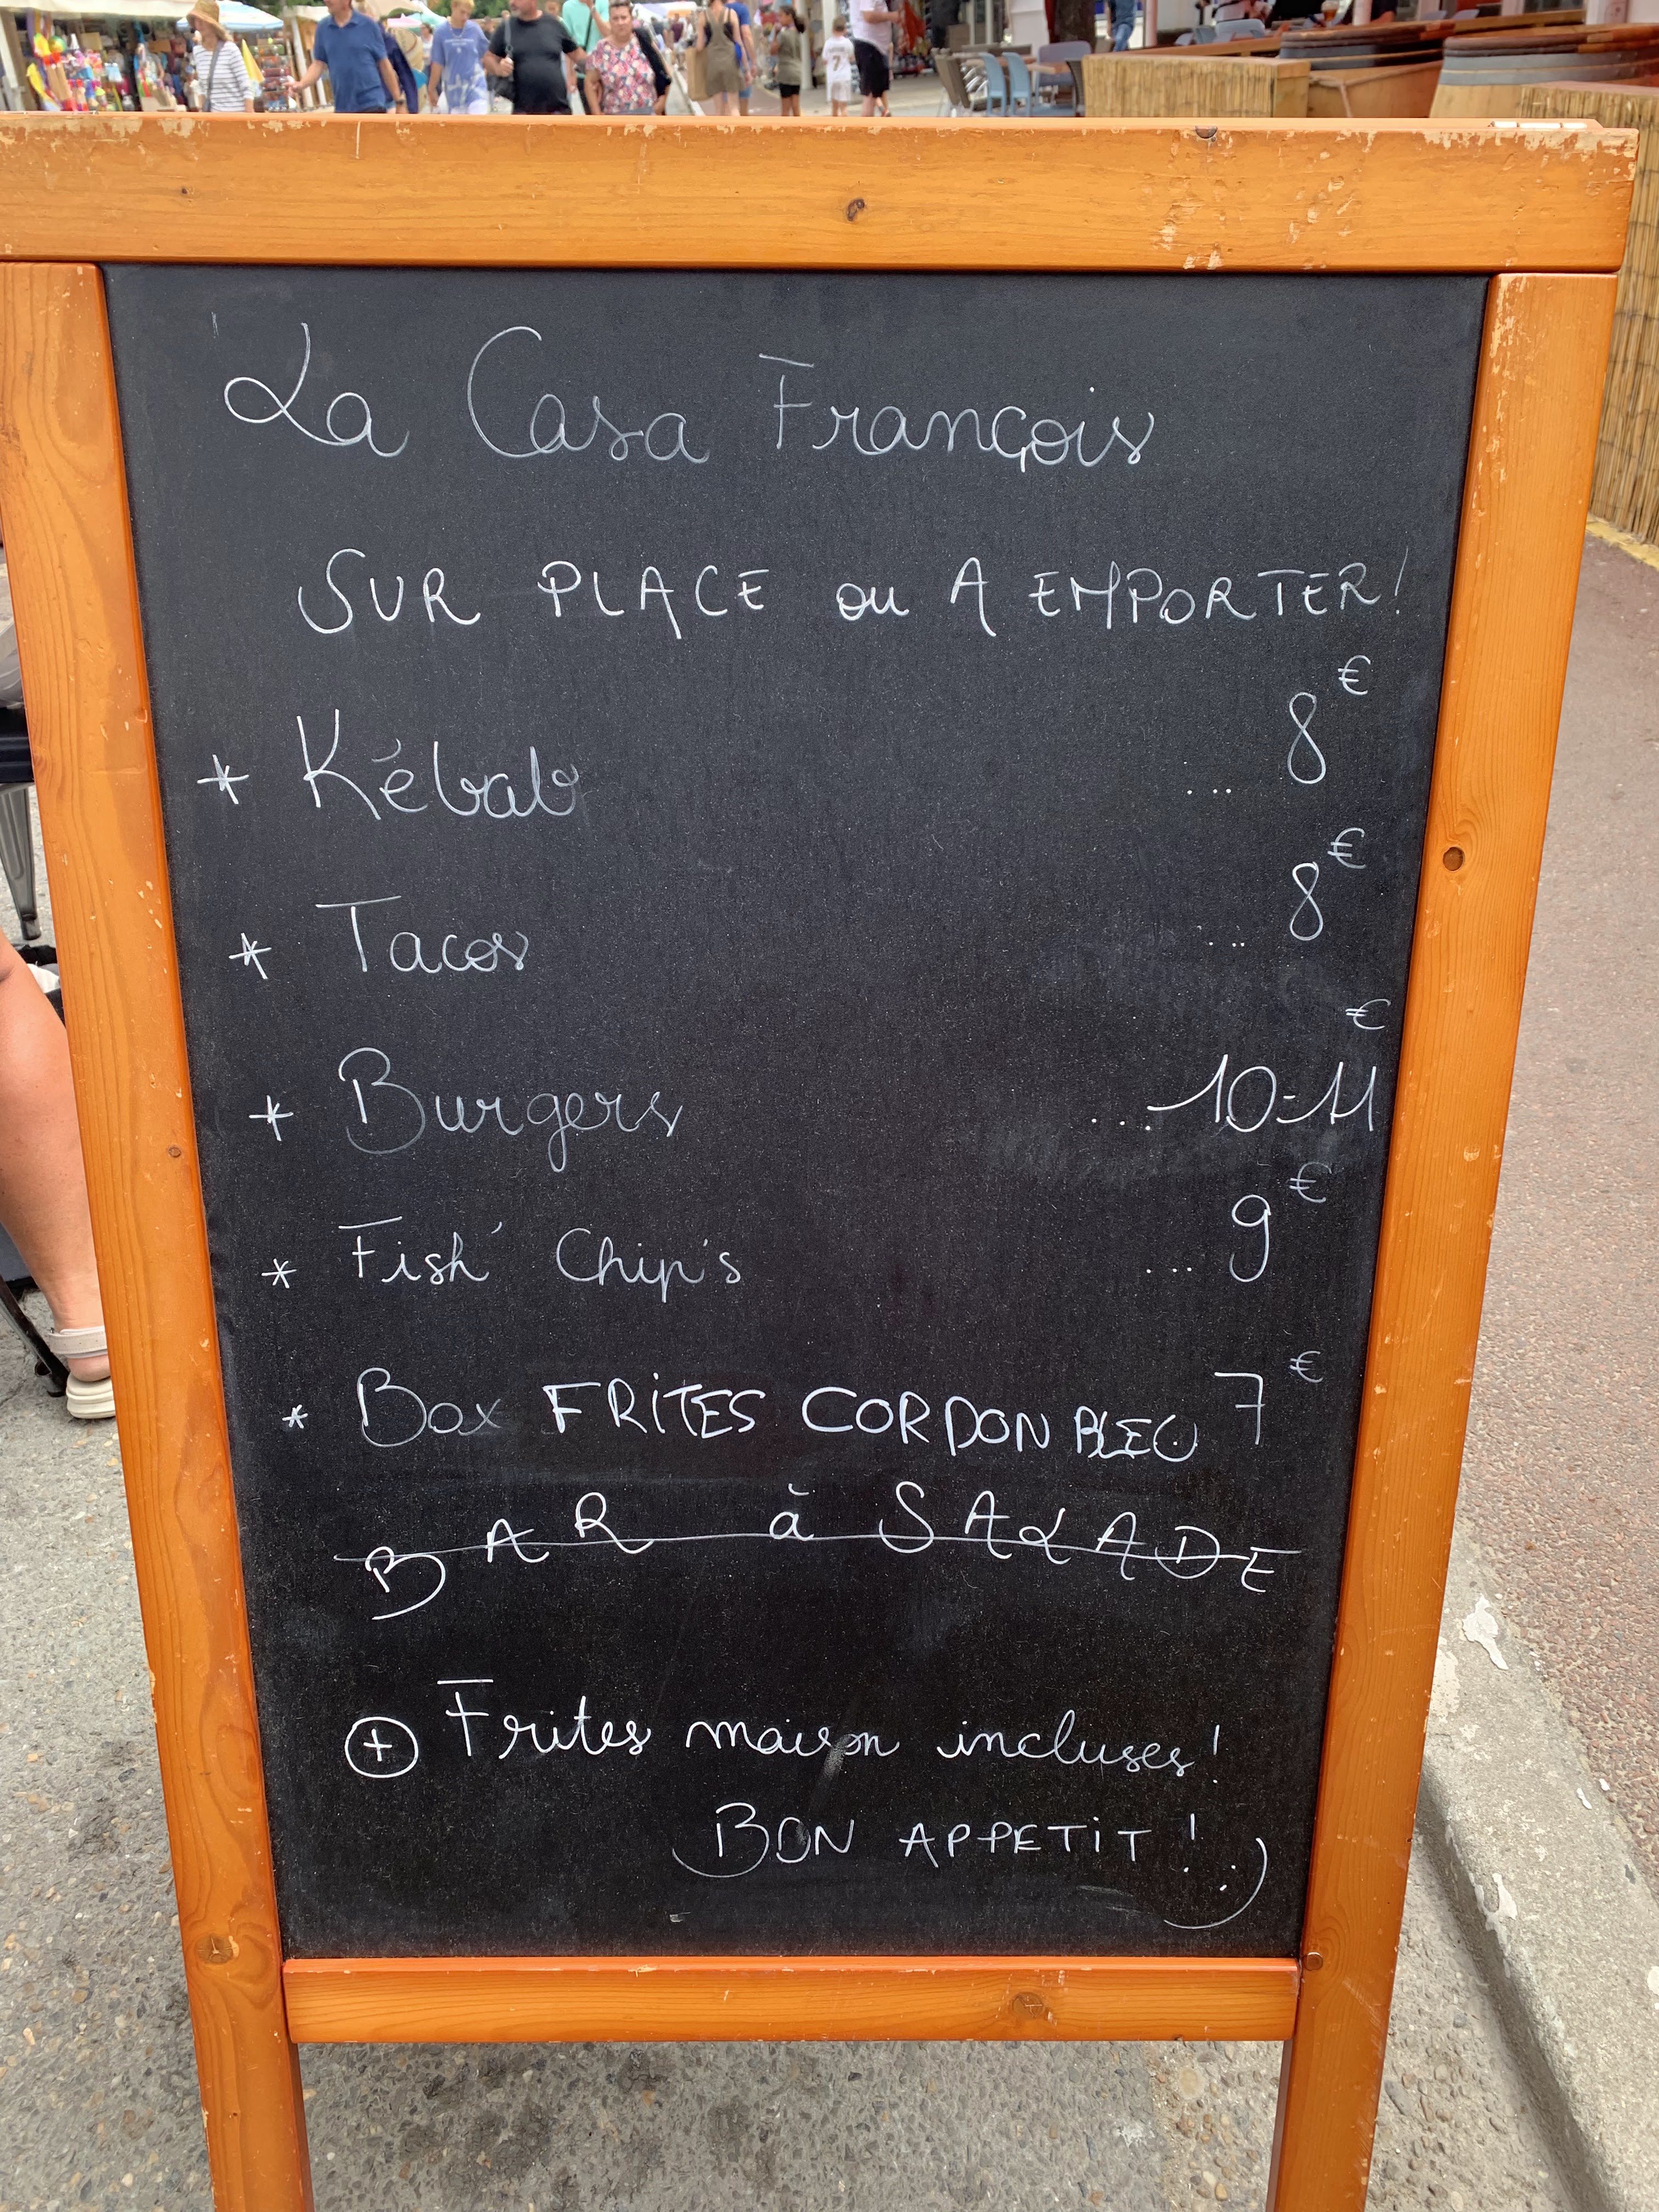 La Casa François
SUR PLACE ou A EMPORTER!
* Kébab ... 8€
* Tacos ... 8€
* Burgers .... 10-11€
* Fish' Chip's ... 9€
* Box FRITES CORDON BLEU 7€
BAR à SALADE
⊕ Frites maison incluses!
BON APPETIT! :)